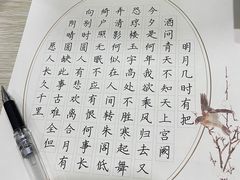 明月几时有把
酒问青天不知天上宫阙
今夕是何年我欲乘风归去又
恐琼楼玉宇高处不胜寒起舞
弄清影何似在人间转朱阁低
绮户照无眠不应有恨何事长
向别时圆人有悲欢离合月有
阴晴圆缺此事古难全但
愿人长久千里